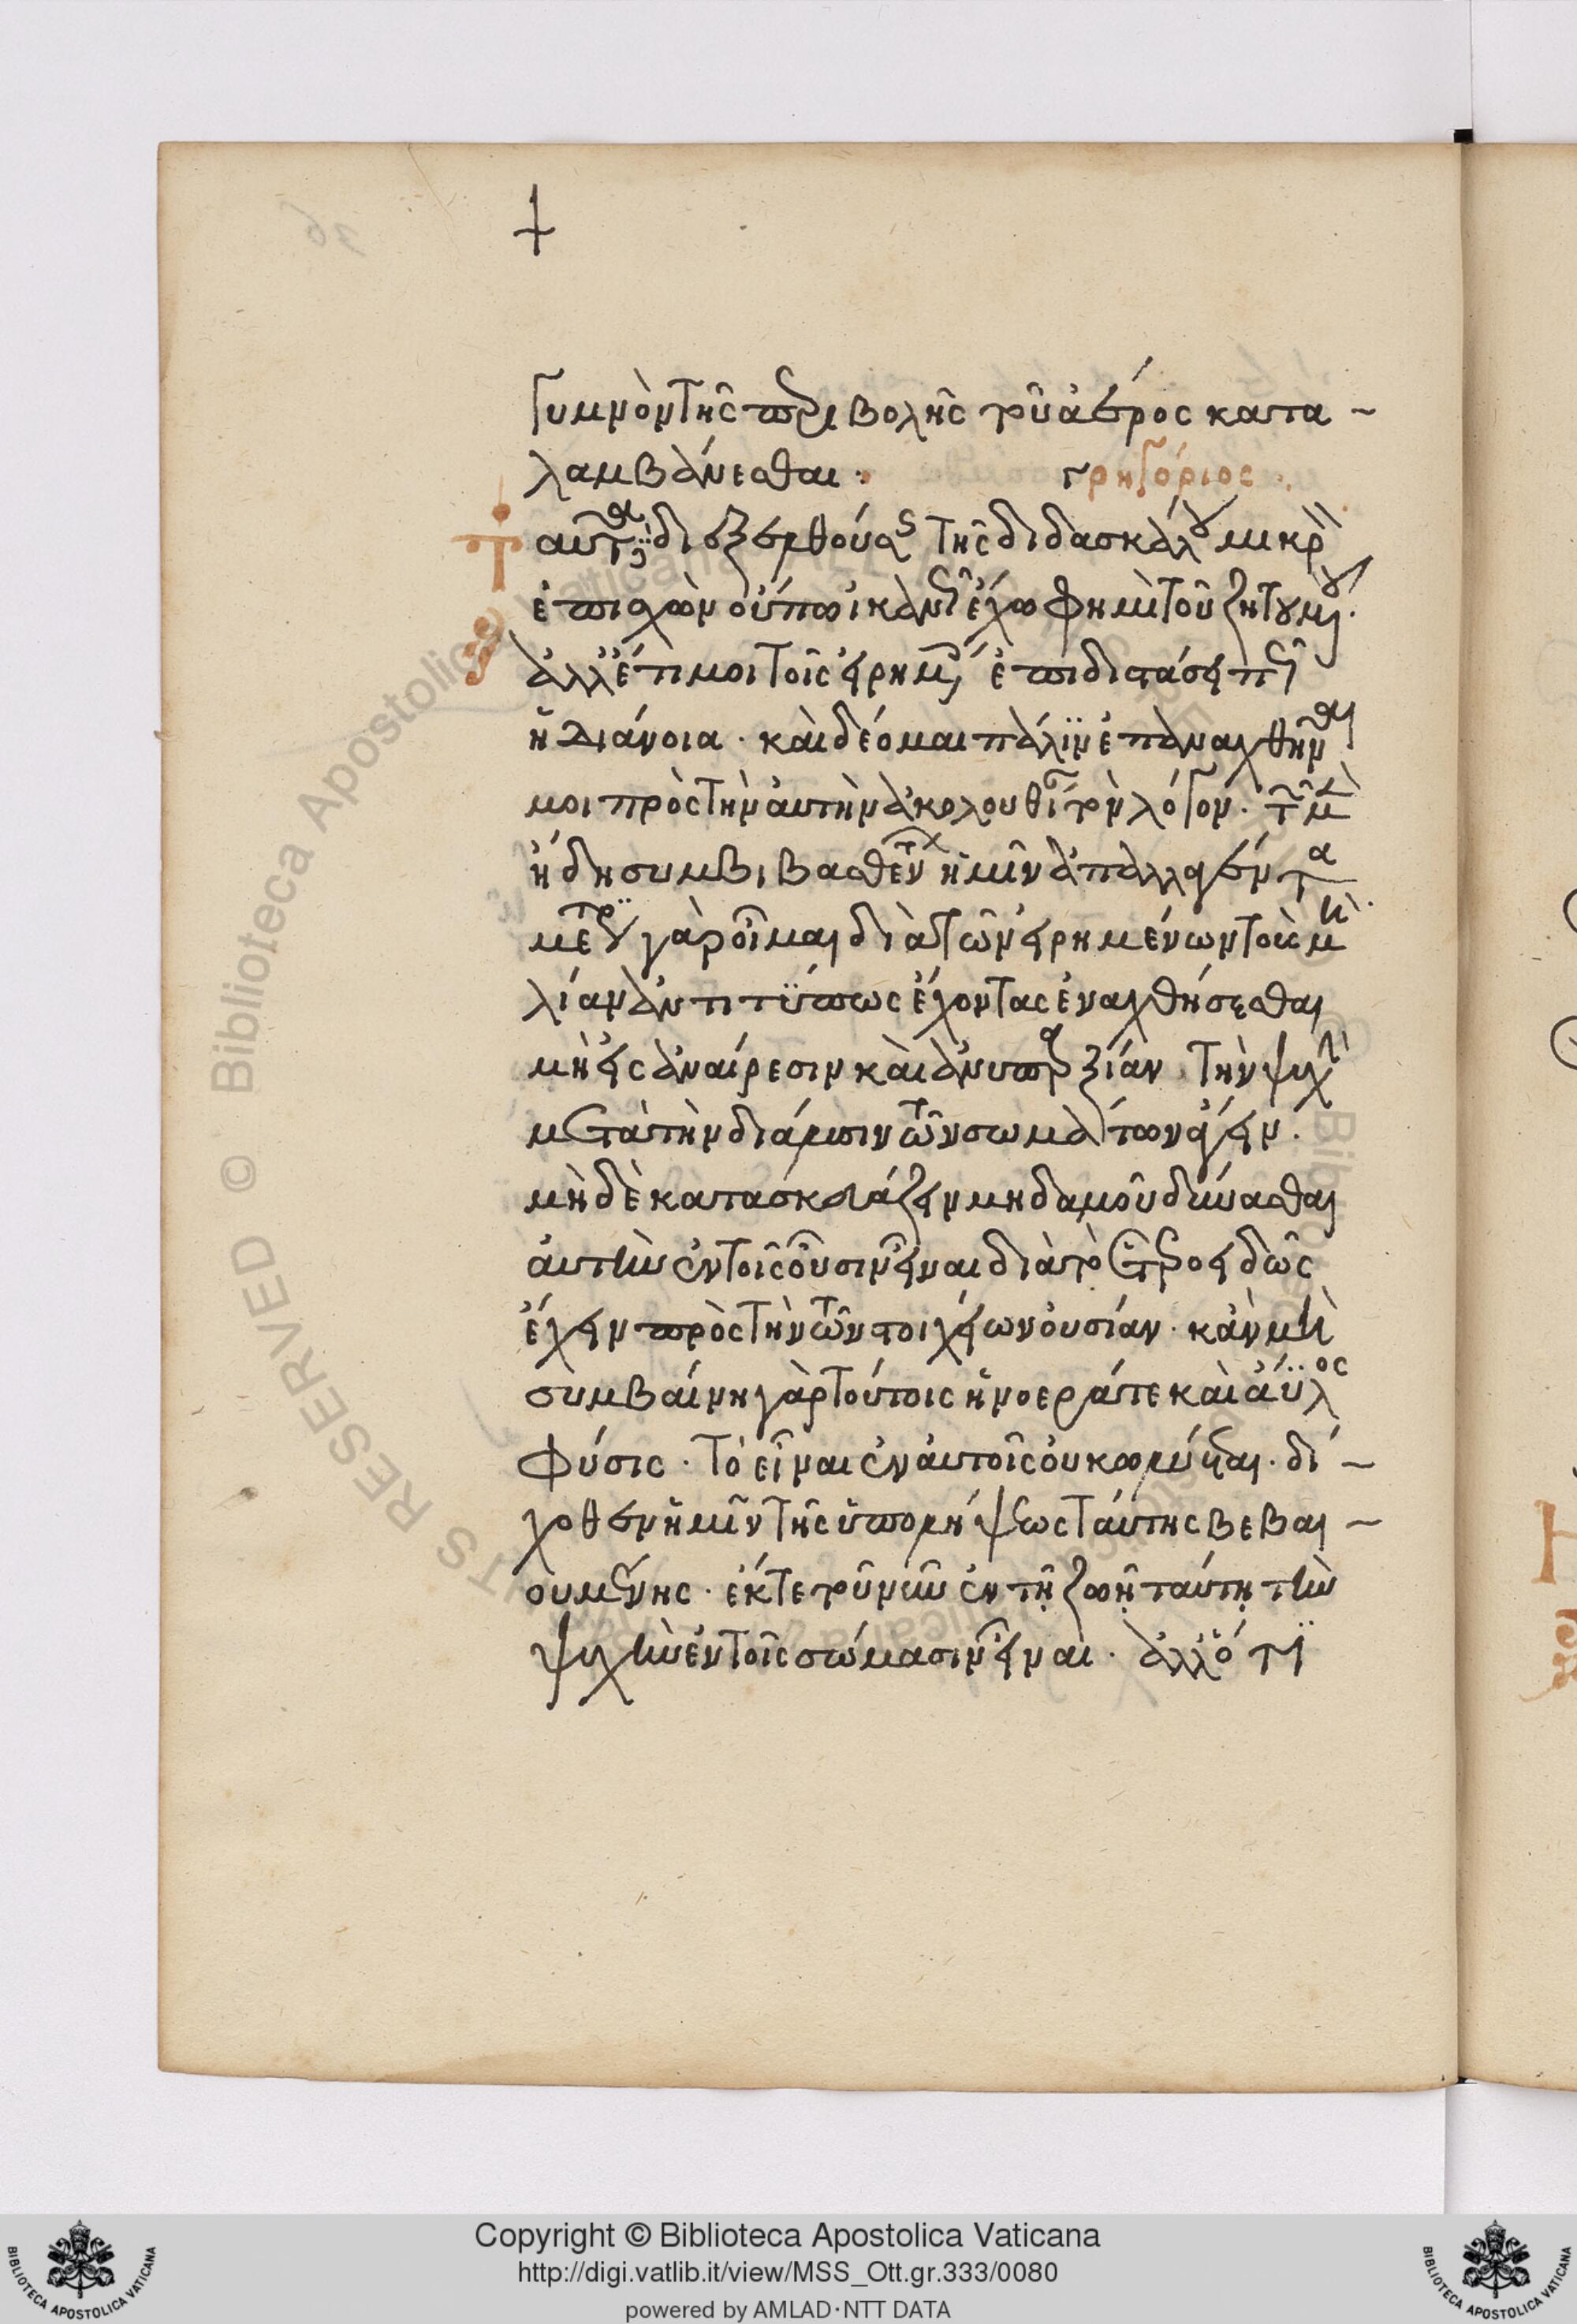 γυμνὸν τῆς περιβολῆς τοῦ ἀέρος κατα-
λαμβάνεσθαι. γρηγόριος.
ταῦτα διεξελθούσης τῆς διδασκάλου μικρὸν
ἐπισχὼν οὔπω ἱκανῶς ἔχω φημὶ τοῦ ζητουμένου.
ἀλλ' ἔτι μοι τοῖς εἰρημένοις ἐπιδιστάζει πως
ἡ διάνοια. καὶ δέομαι πάλιν ἐπαναχθῆναί
μοι πρὸς τὴν αὐτὴν ἀκολουθίαν τὸν λόγον. τῶν μὲν
ἤδη συμβιβασθέντων ἡμῖν ἀπαλλαγέντα
μετρίως γὰρ οἶμαι διὰ τῶν εἰρημένων τοὺς μὴ
λίαν ἀντιτύπως ἔχοντας ἐναχθήσεσθαι
μὴ εἰς ἀναίρεσιν καὶ ἀνυπαρξίαν τὴν ψυχὴν
μετὰ τὴν διάλυσιν τῶν σωμάτων ἄγειν.
μὴ δὲ κατασκευάζειν μηδαμοῦ δύνασθαι
αὐτὴν ἐν τοῖς οὖσιν εἶναι διὰ τὸ ἑτεροειδῶς
ἔχειν πρὸς τὴν τῶν στοιχείων οὐσίαν. κἂν μὴ
συμβαίνη γὰρ τούτοις ἡ νοερά τε καὶ ἄϋλος
φύσις. τὸ εἶναι ἐν αὐτοῖς οὐ κωλύεται. δι-
χόθεν ἡμῖν τῆς ὑπολήψεως ταύτης βεβαι-
ουμένης. ἔκ τε τοῦ νῦν ἐν τῇ ζωῇ ταύτῃ τὴν
ψυχὴν ἐν τοῖς σώμασιν εἶναι. ἄλλό τι
Copyright © Biblioteca Apostolica Vaticana
http://digi.vatlib.it/view/MSS_Ott.gr.333/0080
powered by AMLAD·NTT DATA